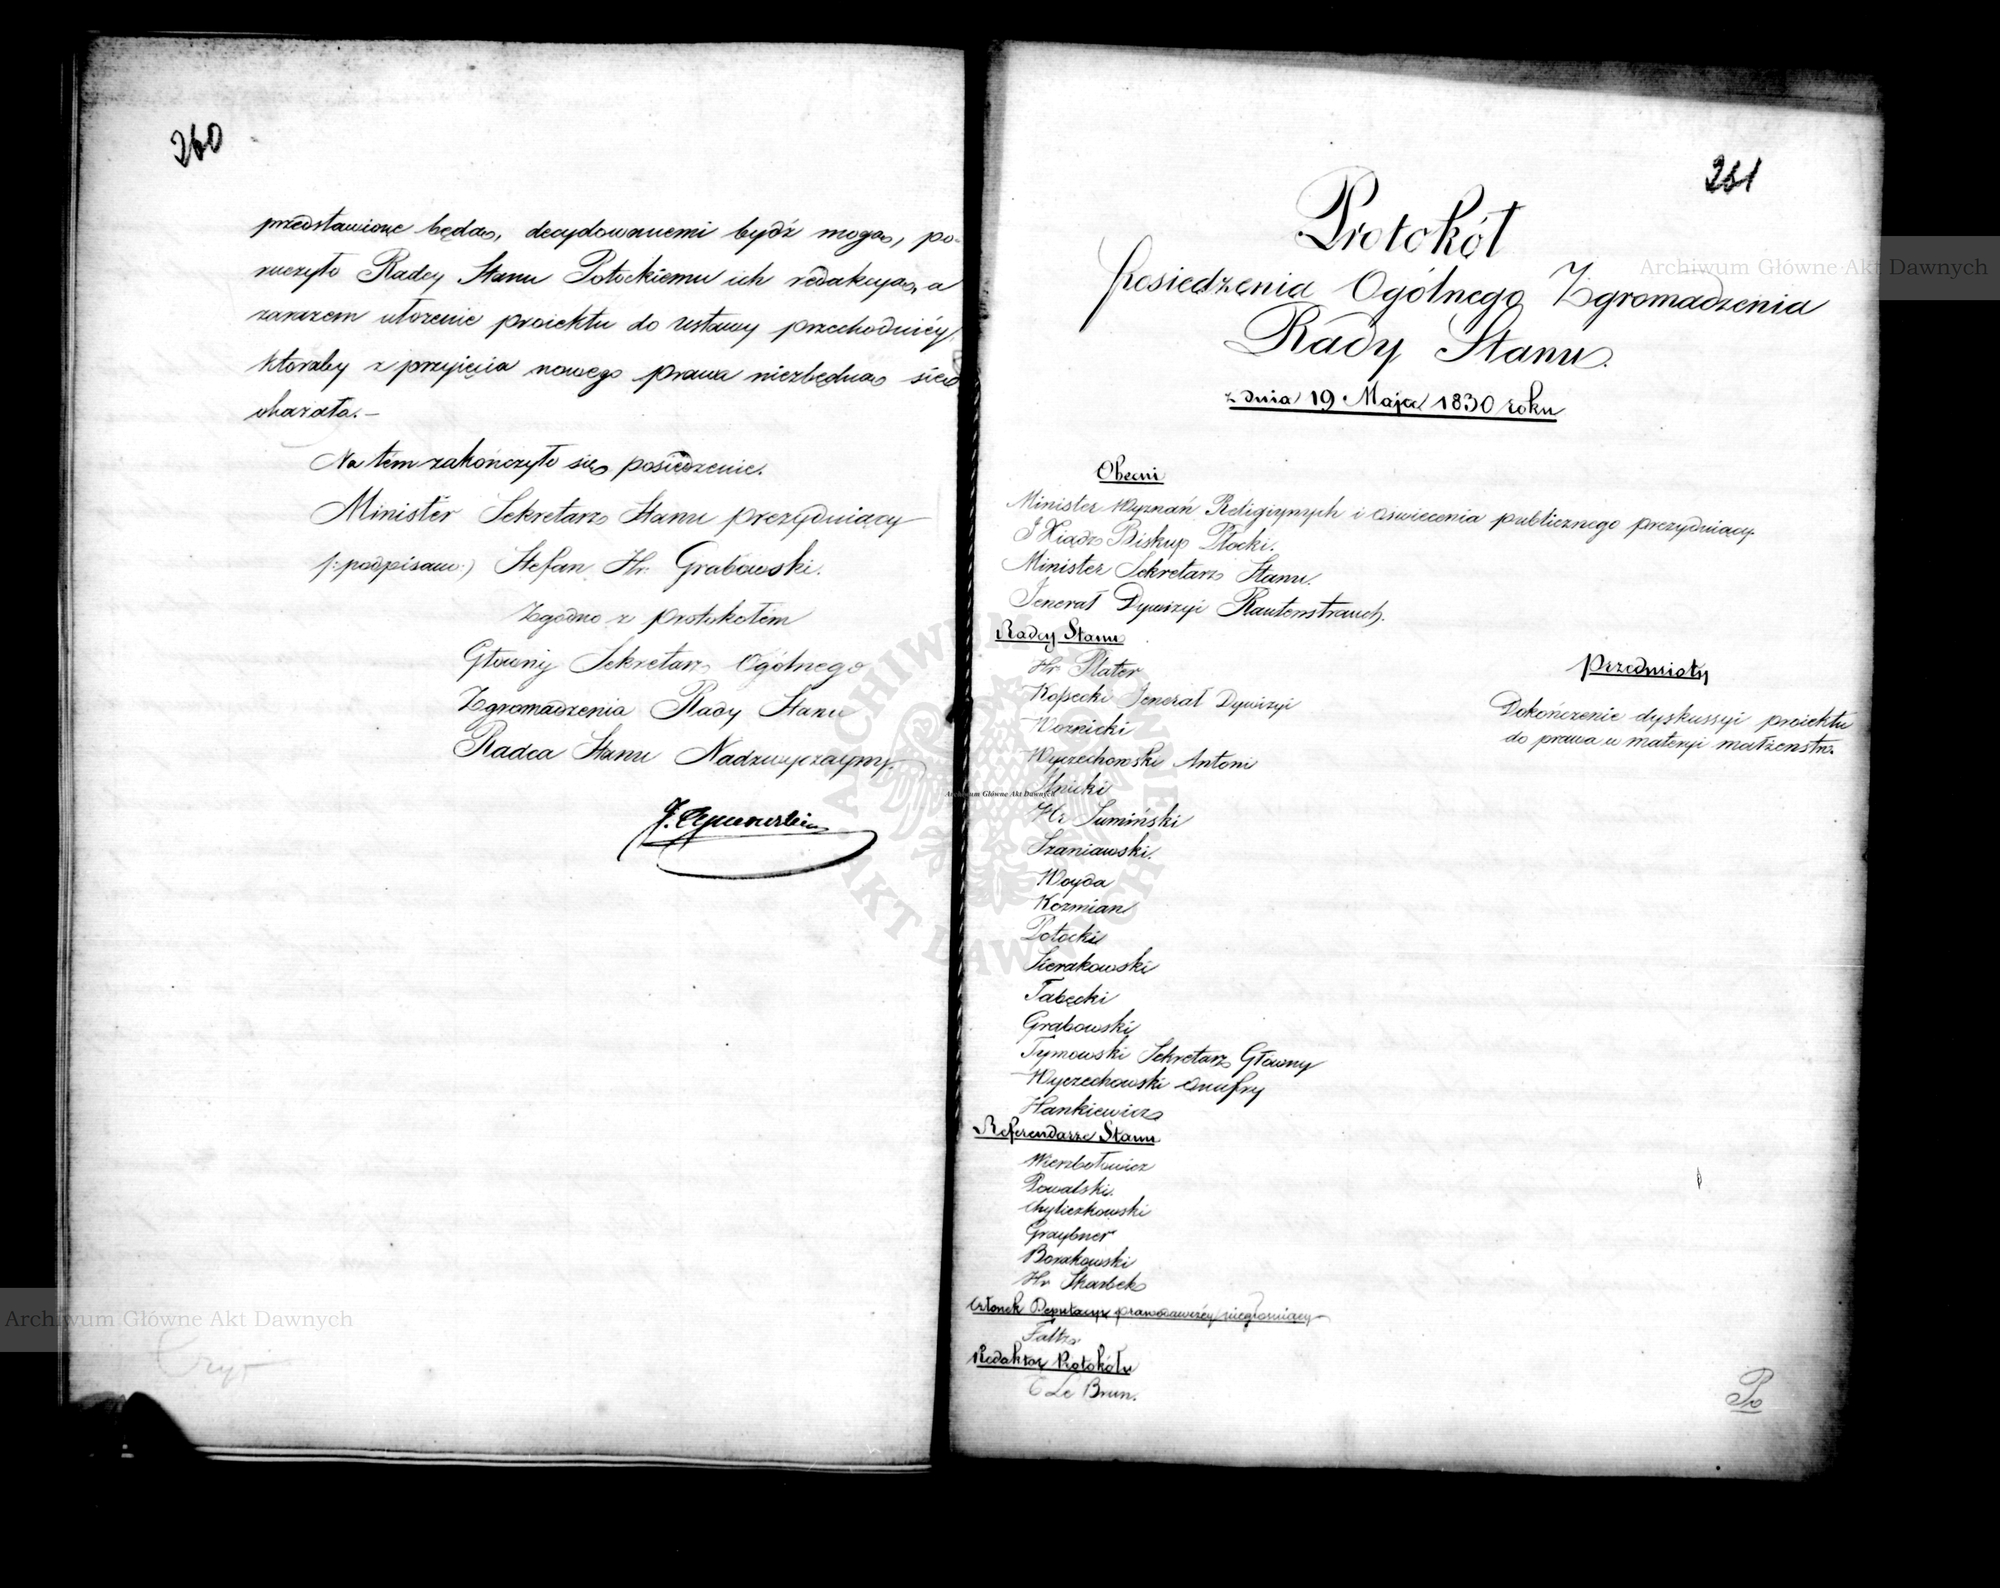 260
przedstawione będą, decydowanemi bydź mogą, po-
ruczyło Radcy Stanu Potockiemu ich redakcyą, a
zarazem ułożenie proiektu do ustawy przechodniéy,
któraby z przyjęcia nowego prawa niezbędną się
okazała.-
Na tém zakończyło się posiedzenie.
Minister Sekretarz Stanu prezyduiący
/:podpisano:/ Stefan Hr: Grabowski.
Zgodno z protokółem
Głowny Sekretarz Ogólnego
Zgromadzenia Rady Stanu
Radca Stanu Nadzwyczayny.
261
Protokół
Posiedzenia Ogólnego Zgromadzenia
Rady Stanu
z dnia 19 Maja 1830 roku
Obecni
Minister Wyznań Religiynych i Oświecenia publicznego prezyduiący.
J Xiądz Biskup Płocki.
Minister Sekretarz Stanu.
Jenerał Dywizyi Rautenstrauch.
Radcy Stanu
Hr. Plater
Kossecki Jenerał Dywizyi
Woznicki
Wyczechowski Antoni
Hr. Sumiński
Szaniawski.
Woyda
Kozmian
Potocki
Sierakowski
Tabęcki
Grabowski
Tymowski Sekretarz Główny
Wyczechowski Onufry
Hankiewicz
Referendarze Stanu
Wierzbołowicz
Kowalski.
Chyliczkowski
Graybner
Borakowski
Hr Skarbek
Członek Deputacyi prawodawczéy niegłosuiący
Faltz.
Redaktor Protokółu
C Le Brun.
Przedmioty
Dokończenie dyskussyi proiektu
do prawa w materyi małżeństw.
Archiwum Główne Akt Dawnych
Archiwum Główne Akt Dawnych
Archiwum Główne Akt Dawnych
ARCHIWUM GŁÓWNE AKT DAWNYCH